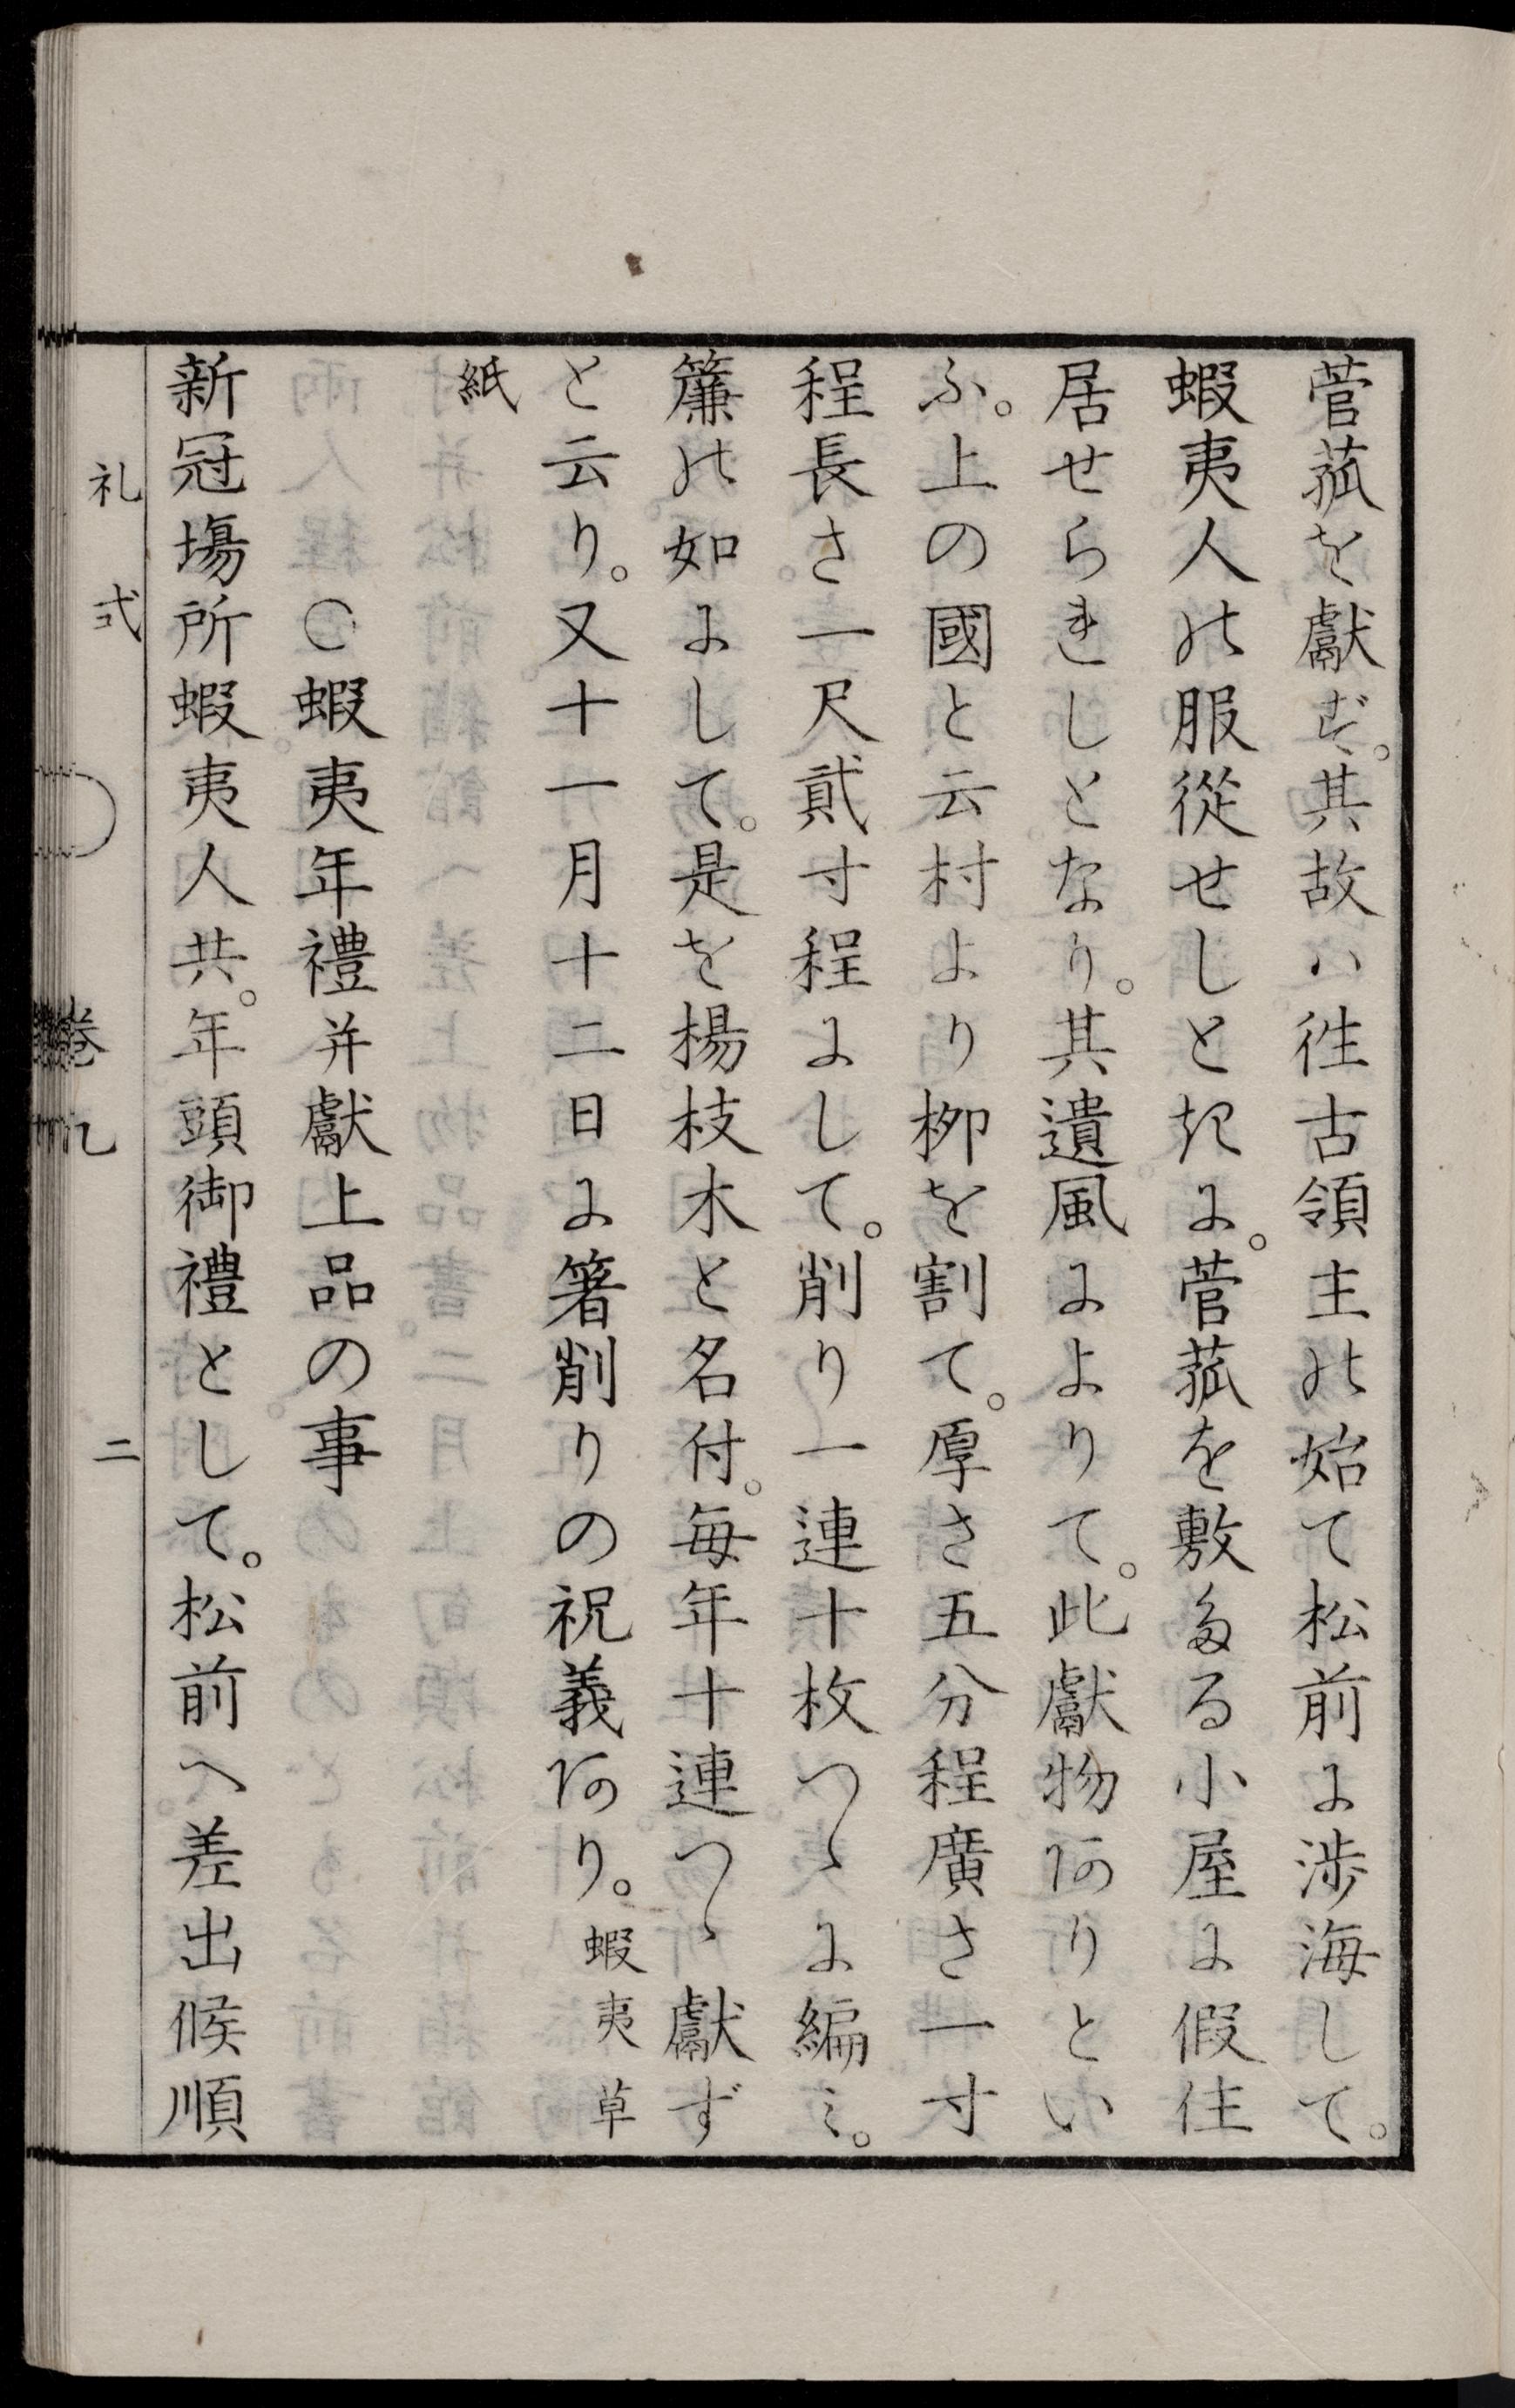 菅菰を獻ず。其故ハ徃古領主の始て松前に渉海して。
蝦夷人の服從せしときに。菅菰を敷たる小屋に假住
居せられしとなり。其遺風によりて。此獻物ありとい
ふ。上の國と云村より栁を割て。厚さ五分程廣さ一寸
程長さ一尺貳寸程にして。削り一連十枚つゝに編ミ。
簾の如にして。是を楊枝木と名付。毎年十連つゝ獻ず
と云り。又十一月十二日に箸削りの祝義あり。蝦夷草
紙
○蝦夷年禮并獻上品の事
新冠塲所蝦夷人共。年頭御禮として。松前へ差出候順
礼式
卷九
二